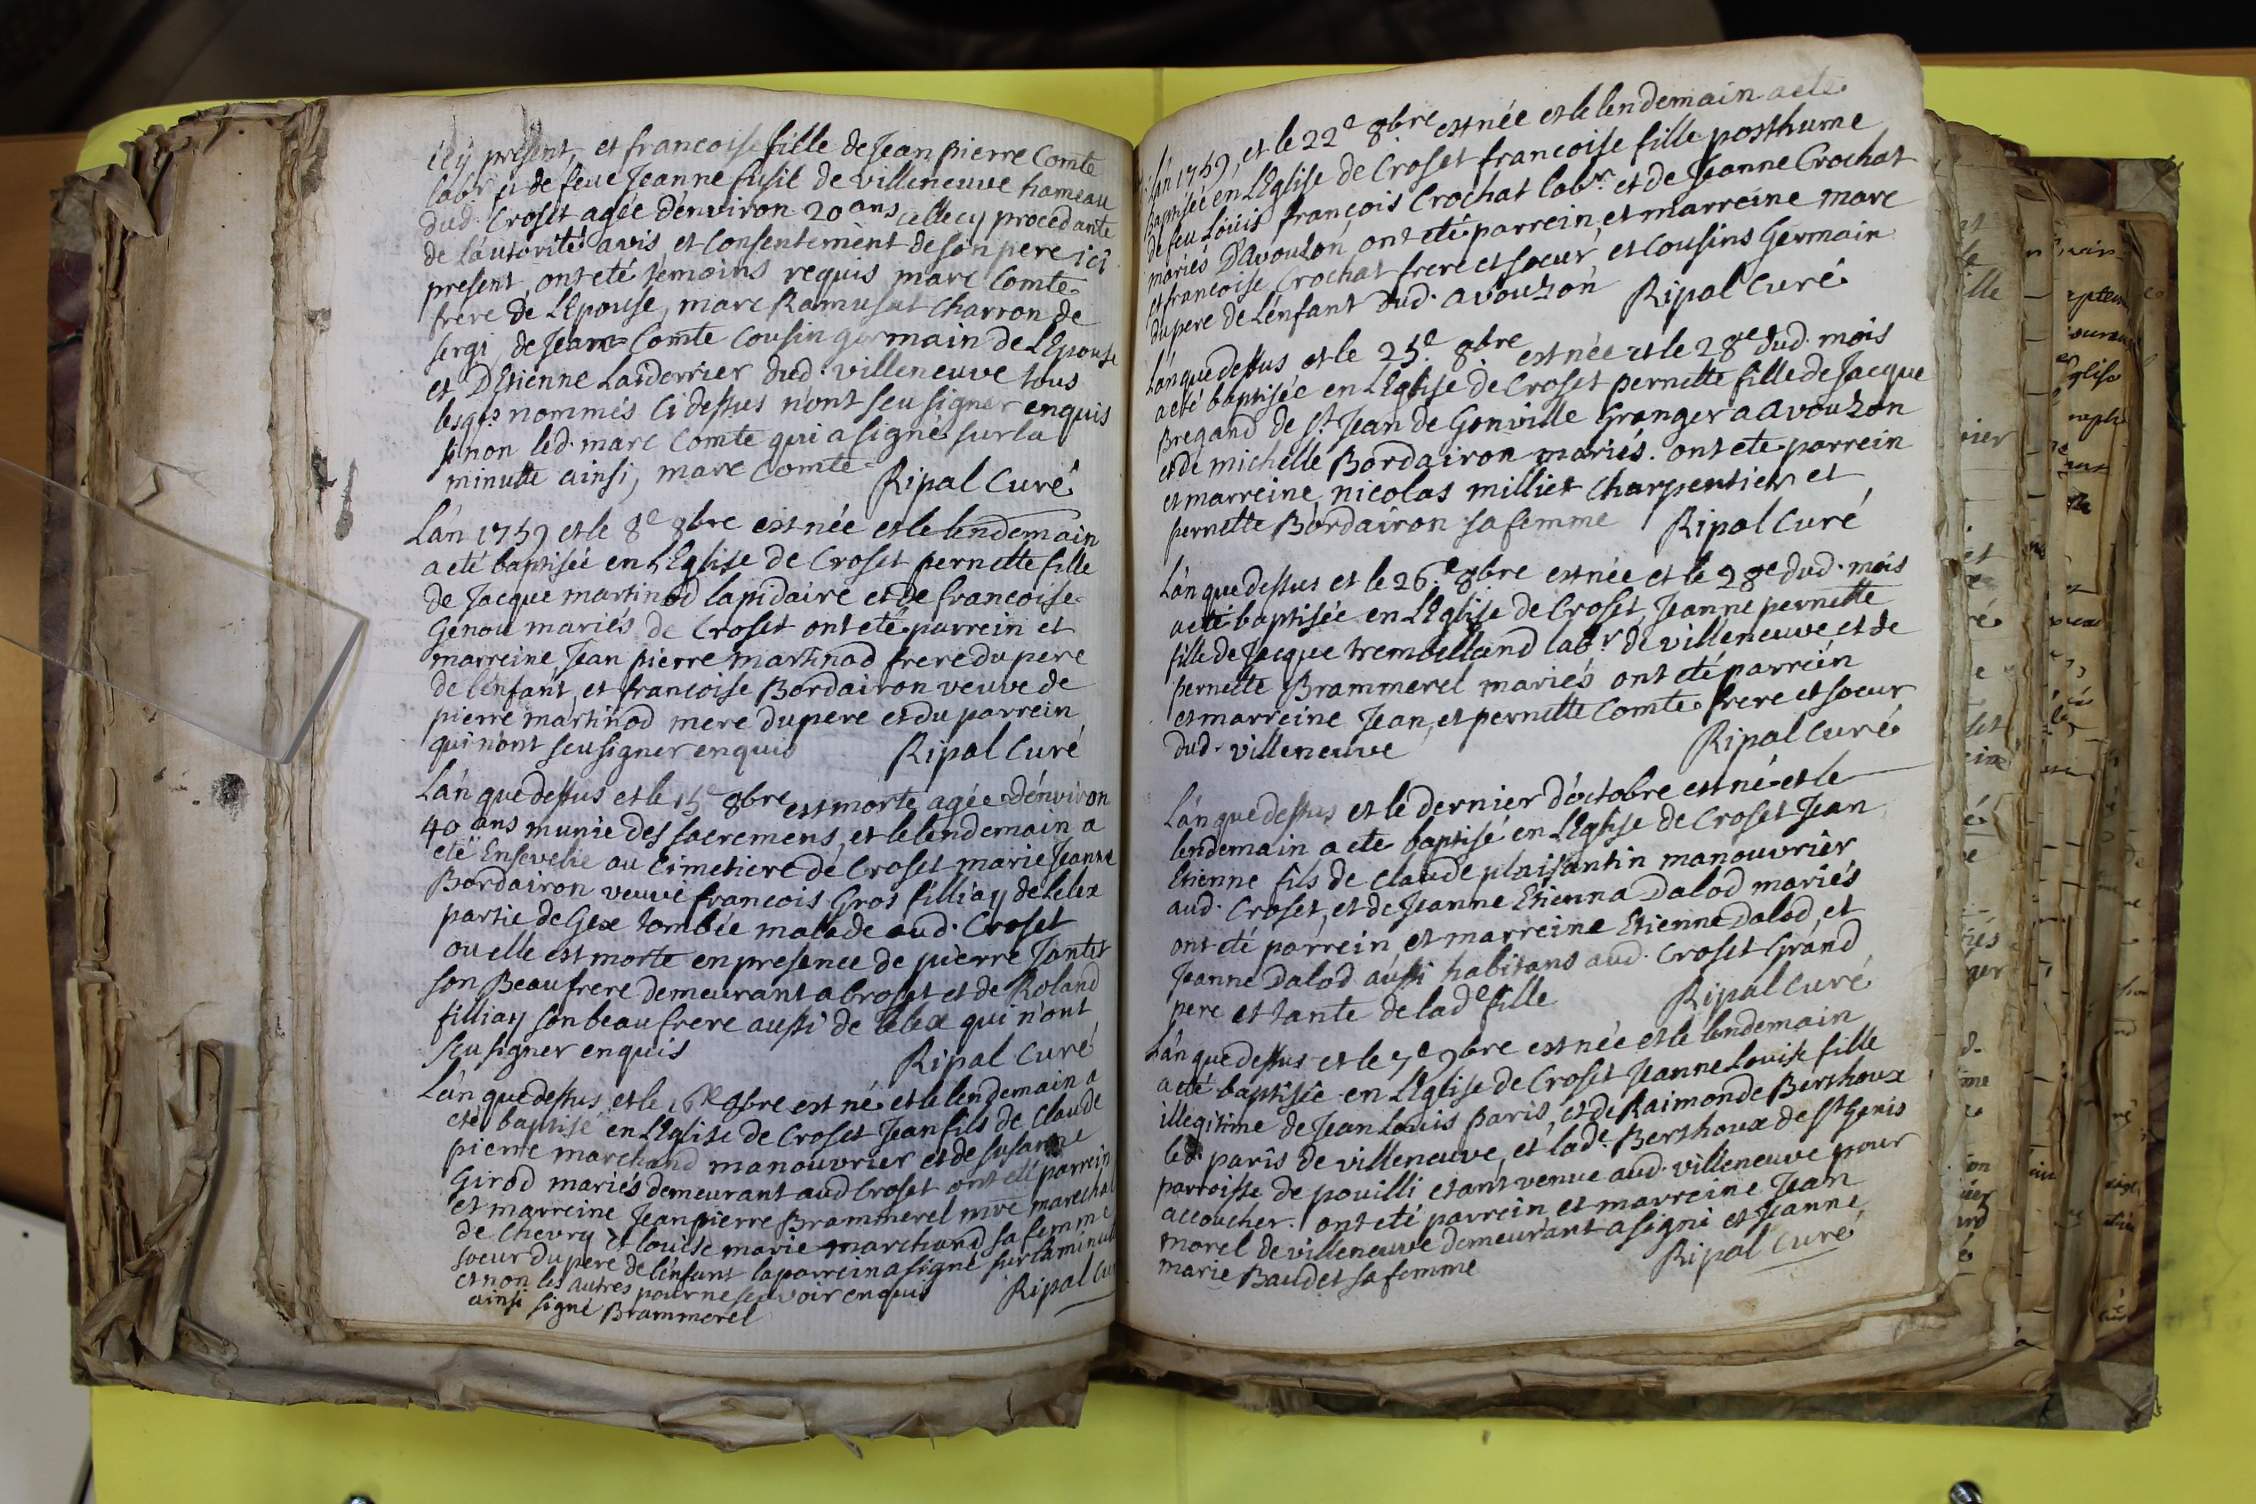 icy present, et francoise fille de Jean pierre Comte
labr. et de feue Jeanne fusil de villeneuve hameau
dud. Croset agée d'environ 20 ans cellecy procedante
de l'autorité avis et consentement de son pere ici
present, ont eté temoins requis marc Comte
frere de L'Epouse, marc Ramusat Charron de
sergi, de Jean Comte Cousin germain de L'Epouse
et D'Etienne Larderrier dud. villeneuve tous
lesqs. nommés ci dessus n'ont seu signer enquis
sinon led. marc Comte qui a signé sur la
minutte ainsi, marc Comte Ripal Curé
L'an 1759 et le 8e 8bre est née et le lendemain
a eté baptisée en L'Eglise de Croset pernette fille
de Jacque martinod lapidaire et de francoise
Genou mariés de Croset ont eté parrein et
marreine Jean pierre martinod frere du pere
de l'enfant, et francoise Bordairon veuve de
pierre martinod mere du pere et du parrein
qui n'ont seu signer enquis Ripal Curé
L'an que dessus et le 15e 8bre est morte agée d'environ
40 ans munie des sacremens, et le lendemain a
eté Ensevelie au Cimetiere de Croset marie Jeanne
Bordairon veuve francois Gros filliay de Lelex
partie de Gex tombée malade aud. Croset
ou elle est morte en presence de pierre Jantet
son Beaufrere demeurant a Croset et de Roland
filliay son beau frere aussi de Lelex qui n'ont
seu signer enquis Ripal Curé
L'an que dessus et le 16e 8bre est né et le lendemain a
eté baptisé en L'Eglise de Croset Jean fils de Claude
pierre marchand manouvrier et de susanne
Girod mariés demeurant aud Croset ont eté parrein
et marreine Jean pierre Brammerel mre marechal
de Chevry et louise marie marchand sa femme
soeur du pere de l'enfant la parrein a signé sur la minute
et non les autres pour ne seavoir enquis
ainsi signé Brammerel Ripal Cu
L'an 1759, et le 22e 8bre est née et le lendemain a eté
Baptisée en L'Eglise de Croset francoise fille posthume
de feu Louis françois Crochat labr. et de Jeanne Crochat
mariés D'avouzon, ont eté parrein, et marreine marc
et francoise Crochat frere et soeur et Cousins Germain
du pere de L'enfant dud. avouzon Ripal Curé
L'an que dessus et le 25e. 8bre est née et le 28e dud. mois
a eté baptisée en L'Eglise de Croset pernette fille de Jacque
Bregand de st Jean de Gonville Granger a avouzon
et de michelle Bordairon mariés. ont ete parrein
et marreine nicolas milliet Charpentier et
pernette Bordairon sa femme Ripal Curé
L'an que dessus et le 26.e 8bre est née et le 28e dud. mois
a eté baptisée en L'Eglise de Croset, Jeanne pernette
fille de Jacque trembelland labr. de villeneuve et de
pernette Brammerel mariés ont eté parrein
et marreine Jean, et pernette Comte frere et soeur
dud. villeneuve Ripal Curé
L'an que dessus et le dernier d'octobre est né et le
lendemain a ete baptisé en L'Eglise de Croset Jean
Etienne fils de claude plaisantin manouvrier
aud. Croset, et de Jeanne Etienna Dalod mariés
ont eté parrein et marreine Etienne Dalod, et
Jeanne Dalod aussi habitans aud. Croset Grand
pere et tante de lade fille Ripal Curé
L'an que dessus et le 7e 9bre est née et le lendemain
a eté baptisée en L'Eglise de Croset Jeanne Louise fille
illegitime de Jean Louis Paris, et de Raimonde Berthoux
led. paris de villeneuve, et lade. Berthoux de st Genis
parroisse de pouilli etant venue aud. villeneuve pour
accoucher. ont eté parrein et marreine Jean
morel de villeneuve demeurant a signé et Jeanne
marie Baudet sa femme Ripal Curé